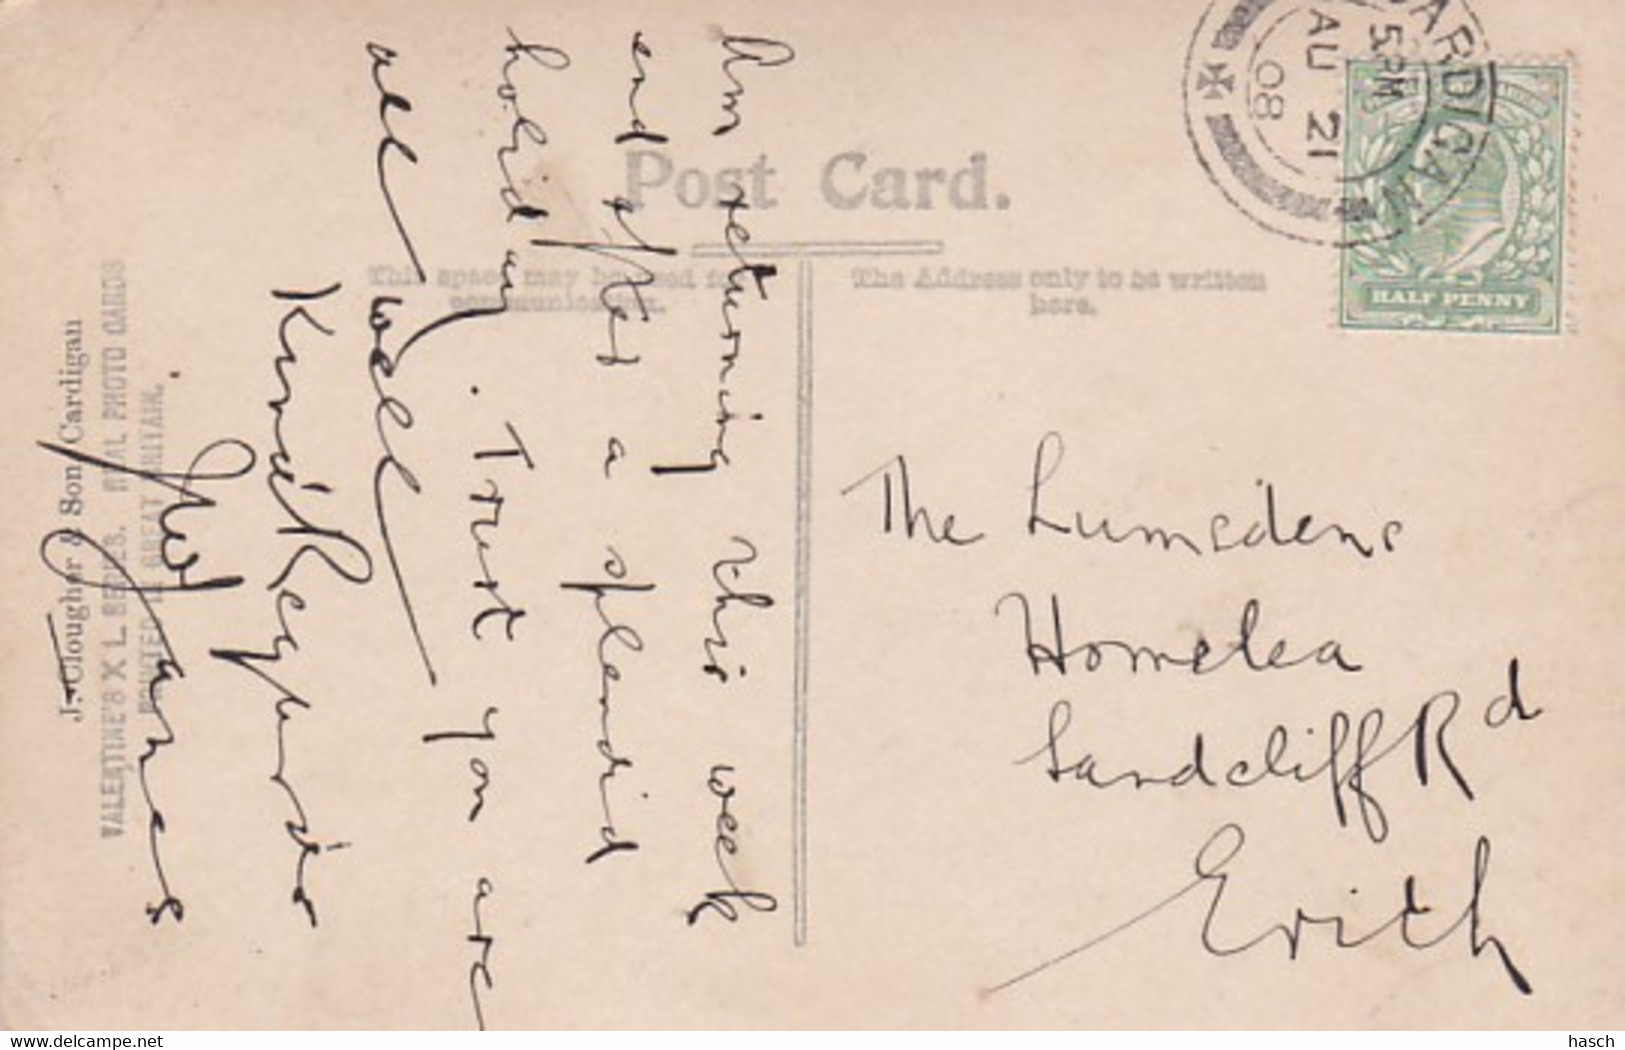 Post Card.
This space may be used for
communication.
The Address only to be written
here.
CARDIGAN
5 PM
AU 21
08
HALF PENNY
Am returning this week
end after a splendid
holiday. Trust you are
all well
Kind Regards
Jones
The Lumsdens
Homelea
Sandcliff Rd
Erith
J. Clougher & Son Cardigan
VALENTINE'S X L SERIES. REAL PHOTO CARDS
PRINTED IN GREAT BRITAIN.
www.delcampe.net
hasch